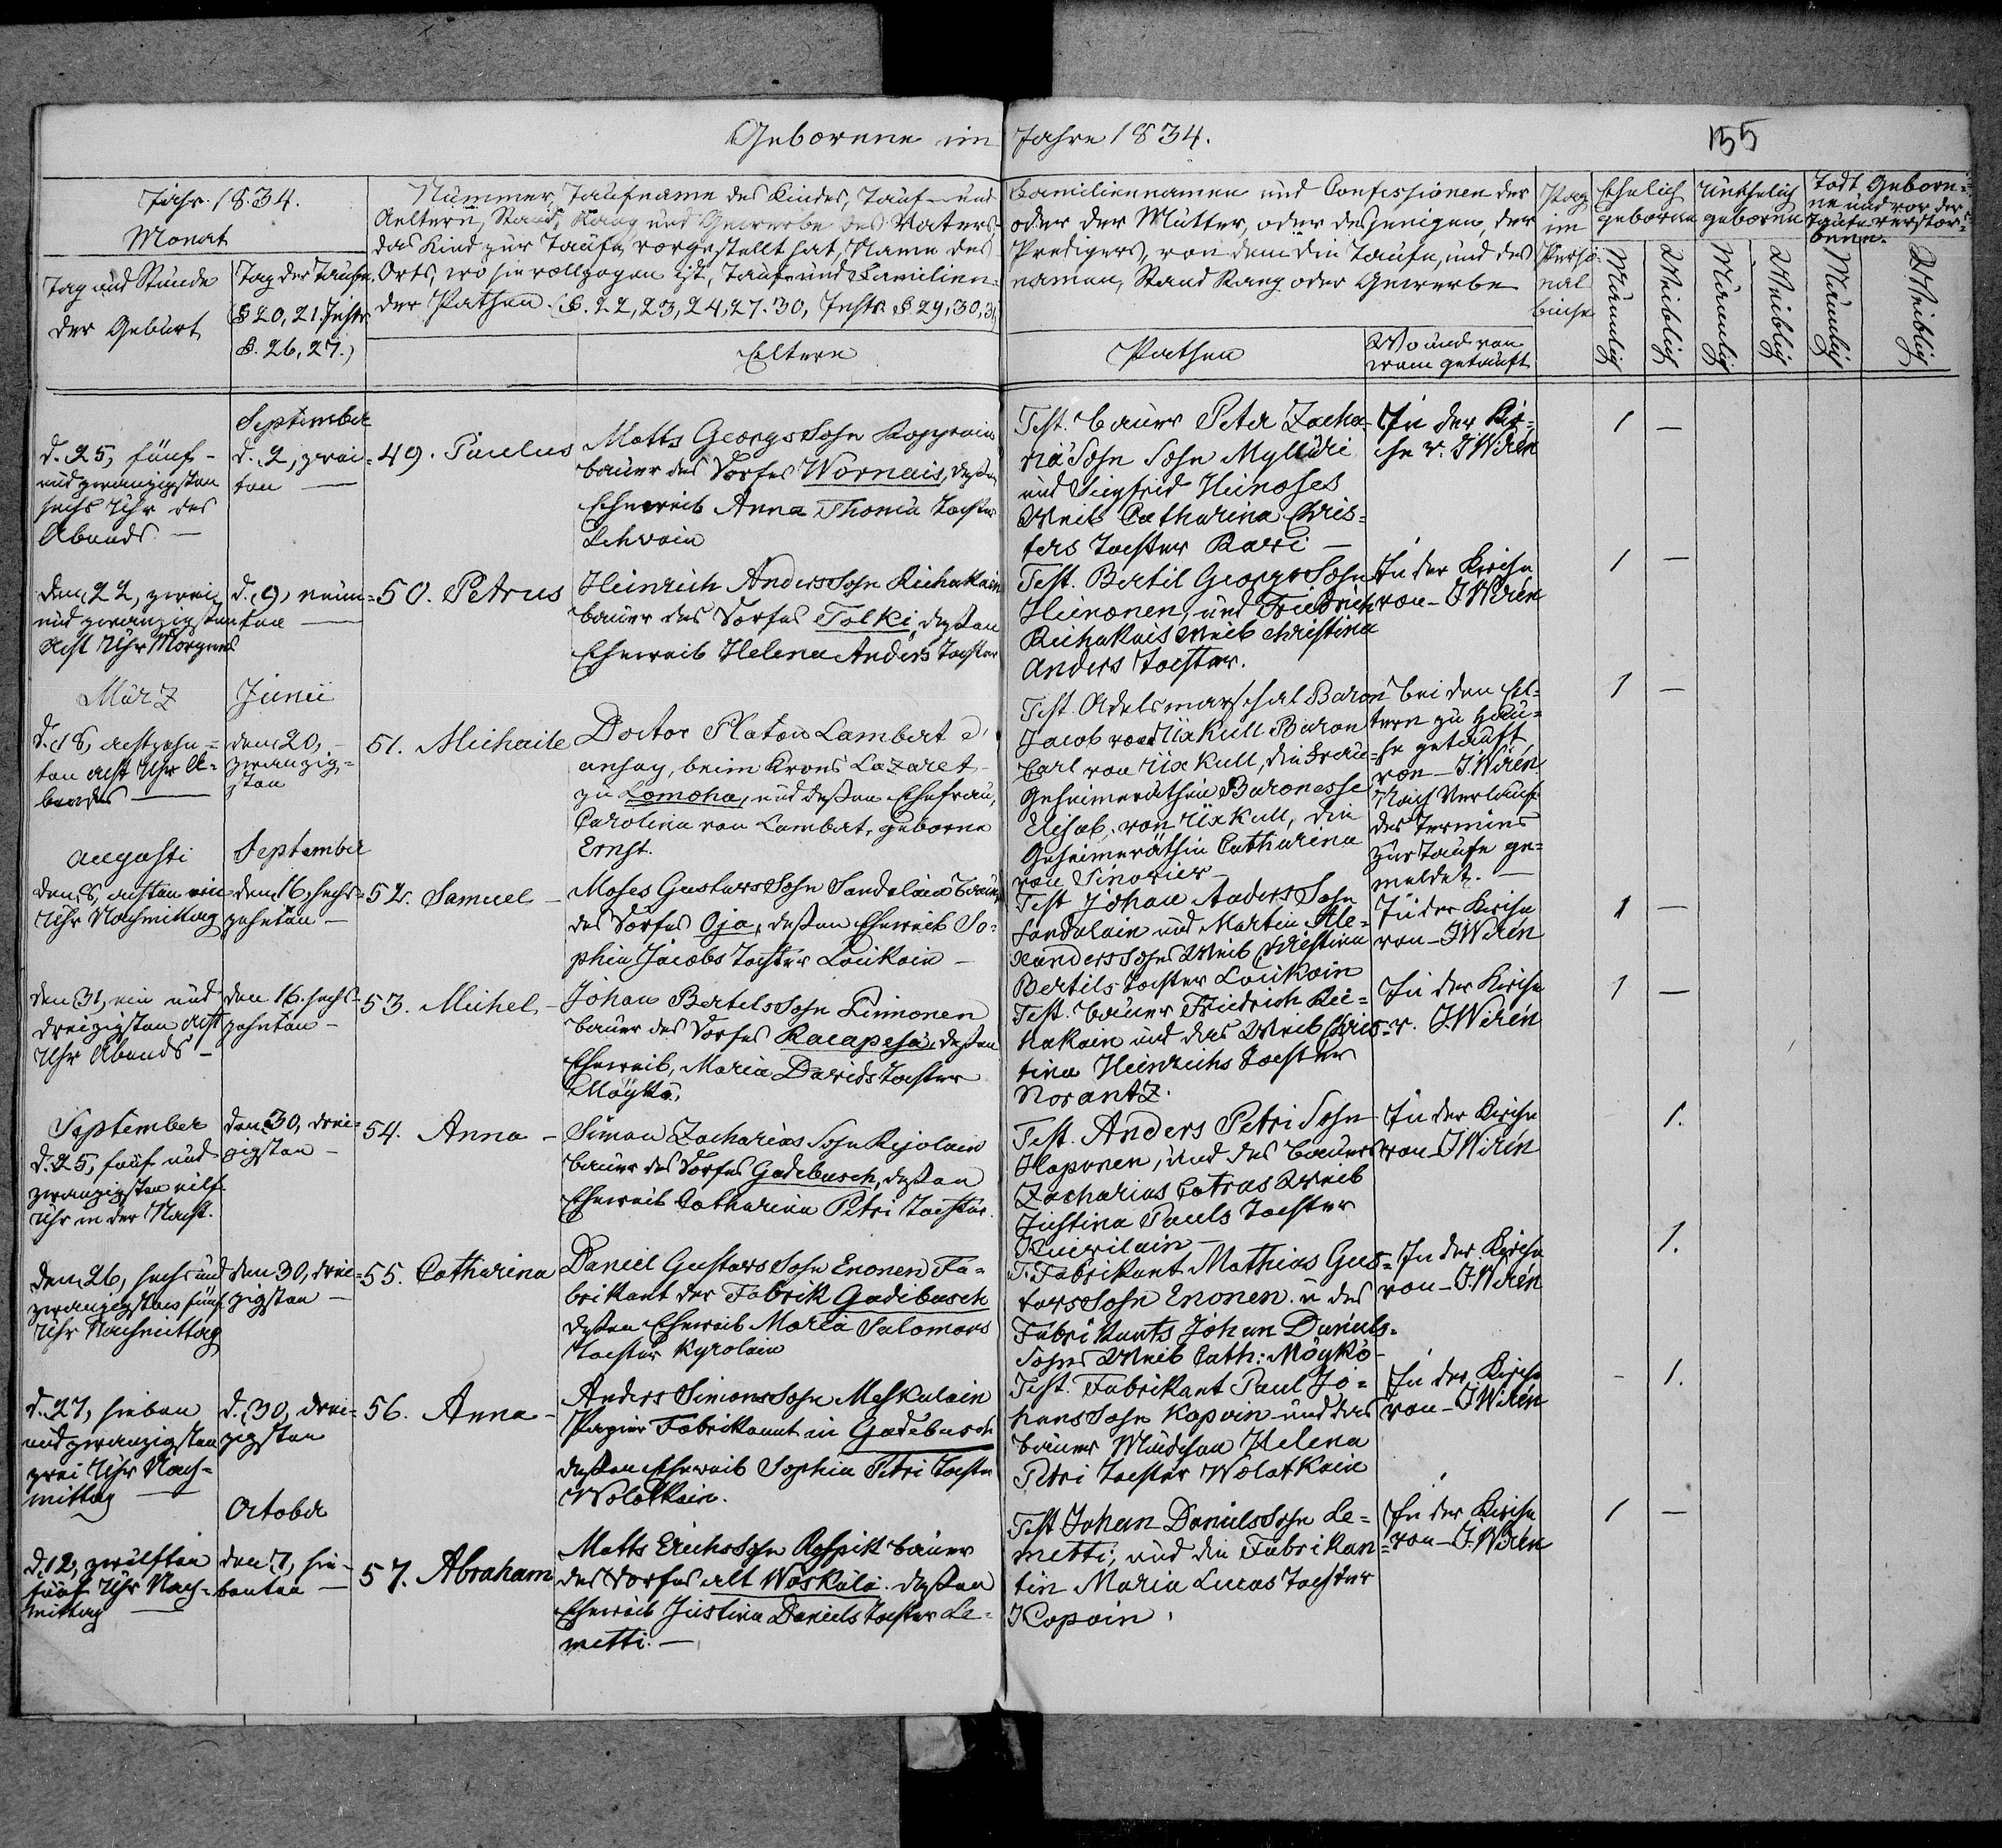 Geborene im Jahre 1834.
155
Jahr. 1834.
Monat
Tag und Stunde
der Geburt
Tag der Taufe.
(§ 20, 21. Instr.
§. 26, 27.)
Nummer, Taufname des Kindes, Tauf- und
Aeltern, Stand, Rang und Gewerbe des Vaters
das Kind zur Taufe vorgestellt hat, Name des
Orts, wo sie vollzogen ist, Tauf- und Familien-
der Pathen (§. 22, 23, 24, 27. 30, Instr. § 29, 30, 31)
Eltern
Familiennamen und Confessionen der
oder der Mutter, oder desjenigen, der
Predigers, von dem die Taufe, und des
namen, Stand Rang oder Gewerbe
Pathen
Wo und von
wem getauft
Pag
im
Perso-
nal
buche
Ehelich
geborene
Unehelich
geborene
Todt Gebore-
ne und vor der
Taufe verstor-
bene.
Männlich
Weiblich
Männlich
Weiblich
Männlich
Weiblich
d. 25, fünf-
und zwanzigsten
sechs Uhr des
Abends. —
September
d. 2, zwei-
ten —
49. Paulus
Matts Georgs Sohn
Bauer des Dorfes Wornais, deßen
Eheweib Anna Thomä Tochter
Test. Bauer Peter Zacha-
riä Sohn Sohn Mylläri
und Siegfrid Heinoses
Weib Catharina Chris-
ters Tochter Kari —
In der Kir-
che v. J Wirén
1 —
den 22, zwei
und zwanzigsten
Acht Uhr Morgens
d. 9, neun-
ten —
50. Petrus
Heinrich Anders Sohn
Bauer des Dorfes Tolki, deßen
Eheweib Helena Anders Tochter
Test. Bertil Georgs Sohn
Heinonen, und Friedrich
Weib Christina
Anders Tochter.
In der Kirche
von — J Wirén
1 —
März
d. 18, achtzehn-
ten acht Uhr A-
bends —
Junii
den 20,
zwanzig-
sten
51. Michaile
Doctor Platon Lambert
beim Krons Lazaret
zu Lomoha, und deßen Ehefrau,
Carolina von Lambert, geborne
Ernst.
Test. Adelsmarschal Baron
Jacob von Üxkull Baron
Carl von Üxkull, die Frau
Geheimeräthin Baronesse
Elisab. von Üxkull, die
Geheimeräthin Catharina
von Sinovier —
bei den El-
tern zu Hau-
se getauft
von — J. Wirén
Nach Verlauf
des Termins
zur Taufe ge-
meldet. —
1 —
Augusti
den 8, achten ein
Uhr Nachmittag
September
den 16, sechs-
zehnten —
52. Samuel —
Moses Gustavs Sohn Sandalain Bauer
des Dorfes Oja, deßen Eheweib So-
phia Jacobs Tochter Loukain —
Test Johan Anders Sohn
Sandalain und Martin Ale-
xanders Sohns Weib Christina
Bertils Tochter Loukain
In der Kirche
von — J Wirén
1 —
den 31, ein und
dreizigsten acht
Uhr Abends —
den 16. sechs-
zehnten —
53. Michel —
Johan Bertels Sohn Pinnonen
Bauer des Dorfes Racapesä, deßen
Eheweib, Maria Davids Tochter
Mäykö.
Test. Bauer Friedrich Rie-
hakain und des Weib Chris-
tina Heinrichs Tochter
Norantz.
In der Kirche
v. J. Wirén
1 —
September
d. 25, fünf und
zwanzigsten eilf
Uhr in der Nacht.
den 30, drei-
zigsten —
54. Anna —
Simon Zacharias Sohn Rejolain
Bauer des Dorfes Gadebusch, deßen
Eheweib Catharina Petri Tochter.
Test. Anders Petri Sohn
Haponen, und des Bauers
Zacharias Catras Weib
Justina Pauls Tochter
In der Kirche
von — J Wirén
1.
den 26, sechs und
zwanzigsten fünf
Uhr Nachmittag
den 30, drei-
zigsten —
55. Catharina
Daniel Gustavs Sohn Enonen Fa-
brikant der Fabrik Gadebusch
deßen Eheweib Maria Salomons
Tochter Kyrolain
T. Fabrikant Mathias Gus-
tavs Sohn Enonen. u des
Fabrikants Johan Daniels-
Sohns Weib Cath: Mäykö —
In der Kirche
von — J. Wirén
1.
d. 27, sieben
und zwanzigsten
zwei Uhr Nach-
mittag —
d. 30, drei-
zigsten
56. Anna —
Anders Simons Sohn Meskulain
Papier Fabrikant in Gadebusch
deßen Eheweib Sophia Petri Tochter
Wolatkain.
Test. Fabrikant Paul Jo-
hans Sohn Kopoin und das
Bauer Mädchen Helena
Petri Tochter Wolatkain
In der Kirche
von — J Wirén
- 1.
d. 12, zwölften
fünf Uhr Nach-
mittag —
October
den 7, sie-
benten —
57. Abraham
Matts Erichs Sohn Bauer
des Dorfes Alt Waskula. deßen
Eheweib Justina Daniels Tochter Le-
metti. —
Test Johan Daniels Sohn Le-
metti, und die Fabrikan-
tin Maria Lucas Tochter
Kopoin.
In der Kirche
von — J. Wirén
1 —